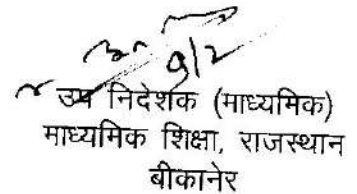 9/2
उप निदेशक (माध्यमिक)
माध्यमिक शिक्षा, राजस्थान
बीकानेर